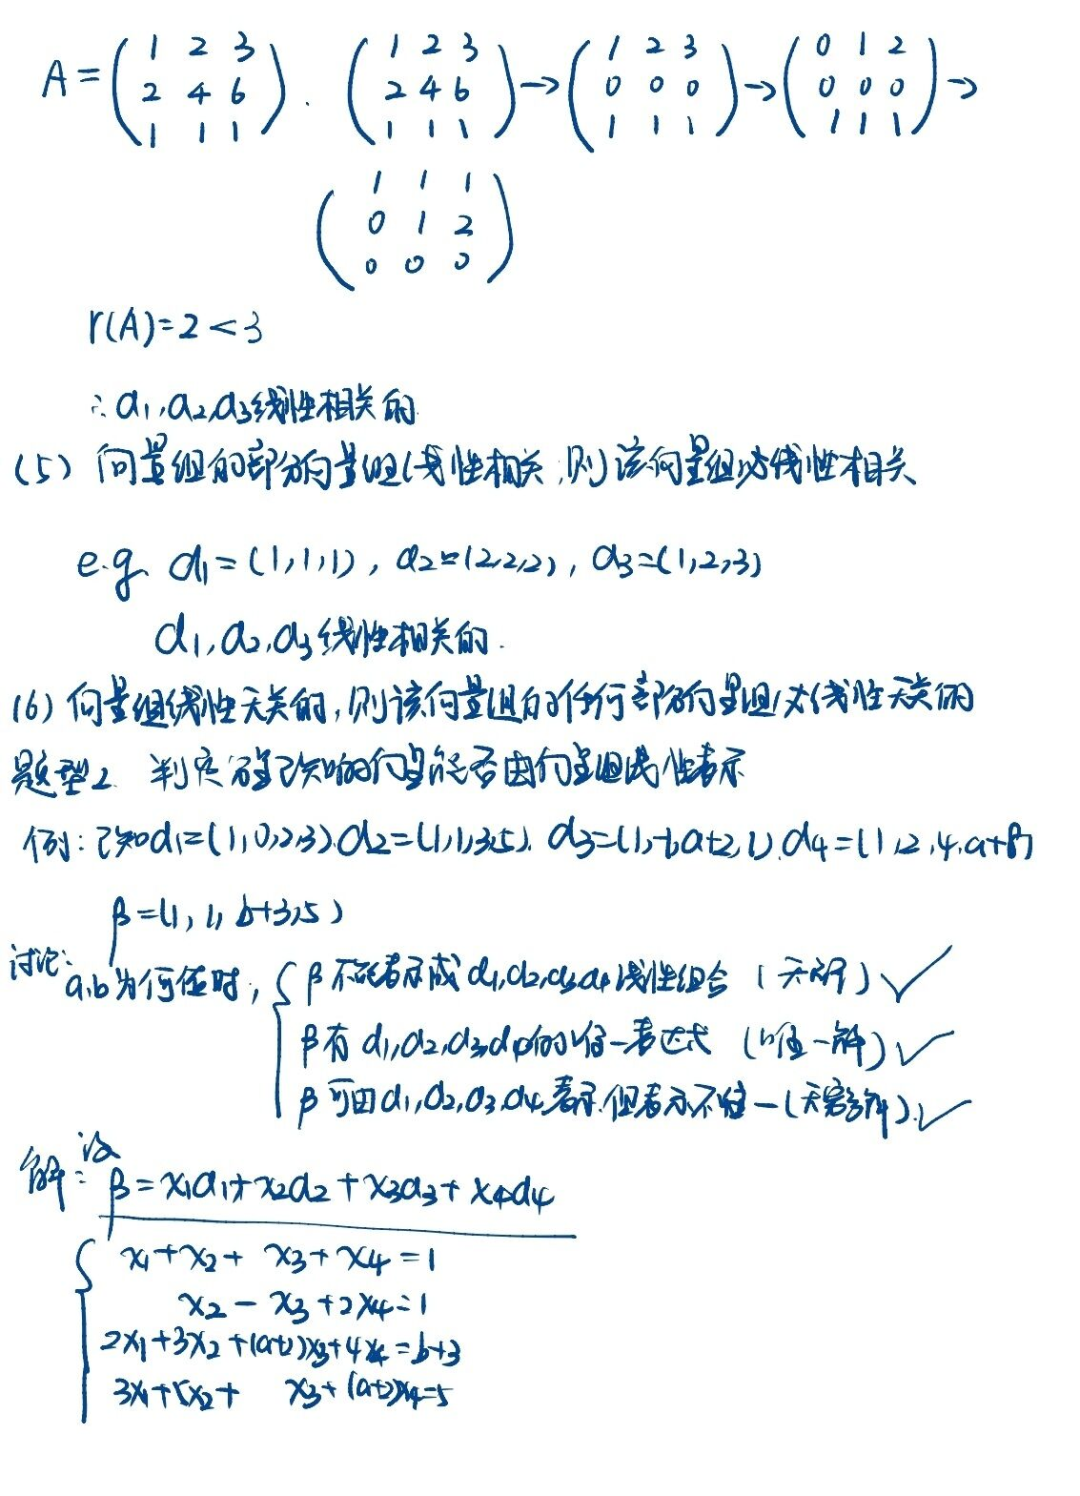 A = ( 1 2 3 ; 2 4 6 ; 1 1 1 ) . ( 1 2 3 ; 2 4 6 ; 1 1 1 ) → ( 1 2 3 ; 0 0 0 ; 1 1 1 ) → ( 0 1 2 ; 0 0 0 ; 1 1 1 ) →
( 1 1 1 ; 0 1 2 ; 0 0 0 )
r(A)=2<3
∴ α1,α2,α3线性相关的
(5) 向量组的部分向量组线性相关,则该向量组必线性相关
e.g. α1=(1,1,1), α2=(2,2,2), α3=(1,2,3)
α1,α2,α3线性相关的.
(6) 向量组线性无关的,则该向量组的任何部分向量组必线性无关的
题型2. 判定 已知的向量能否由向量组线性表示
例: 已知α1=(1,0,2,3) α2=(1,1,3,5). α3=(1,-1,a+2,1) α4=(1,2,4,a+8)
β=(1,1,b+3,5)
讨论: a,b为何值时, { β不能表示成α1,α2,α3,α4线性组合 (无解) ✓
β有α1,α2,α3,α4的唯一表达式 (唯一解) ✓
β可由α1,α2,α3,α4表示,但表示不唯一(无穷多解) ✓
解: 设 β=x1α1+x2α2+x3α3+x4α4
{ x1+x2+x3+x4=1
x2-x3+2x4=1
2x1+3x2+(a+2)x3+4x4=b+3
3x1+5x2+x3+ x4=5